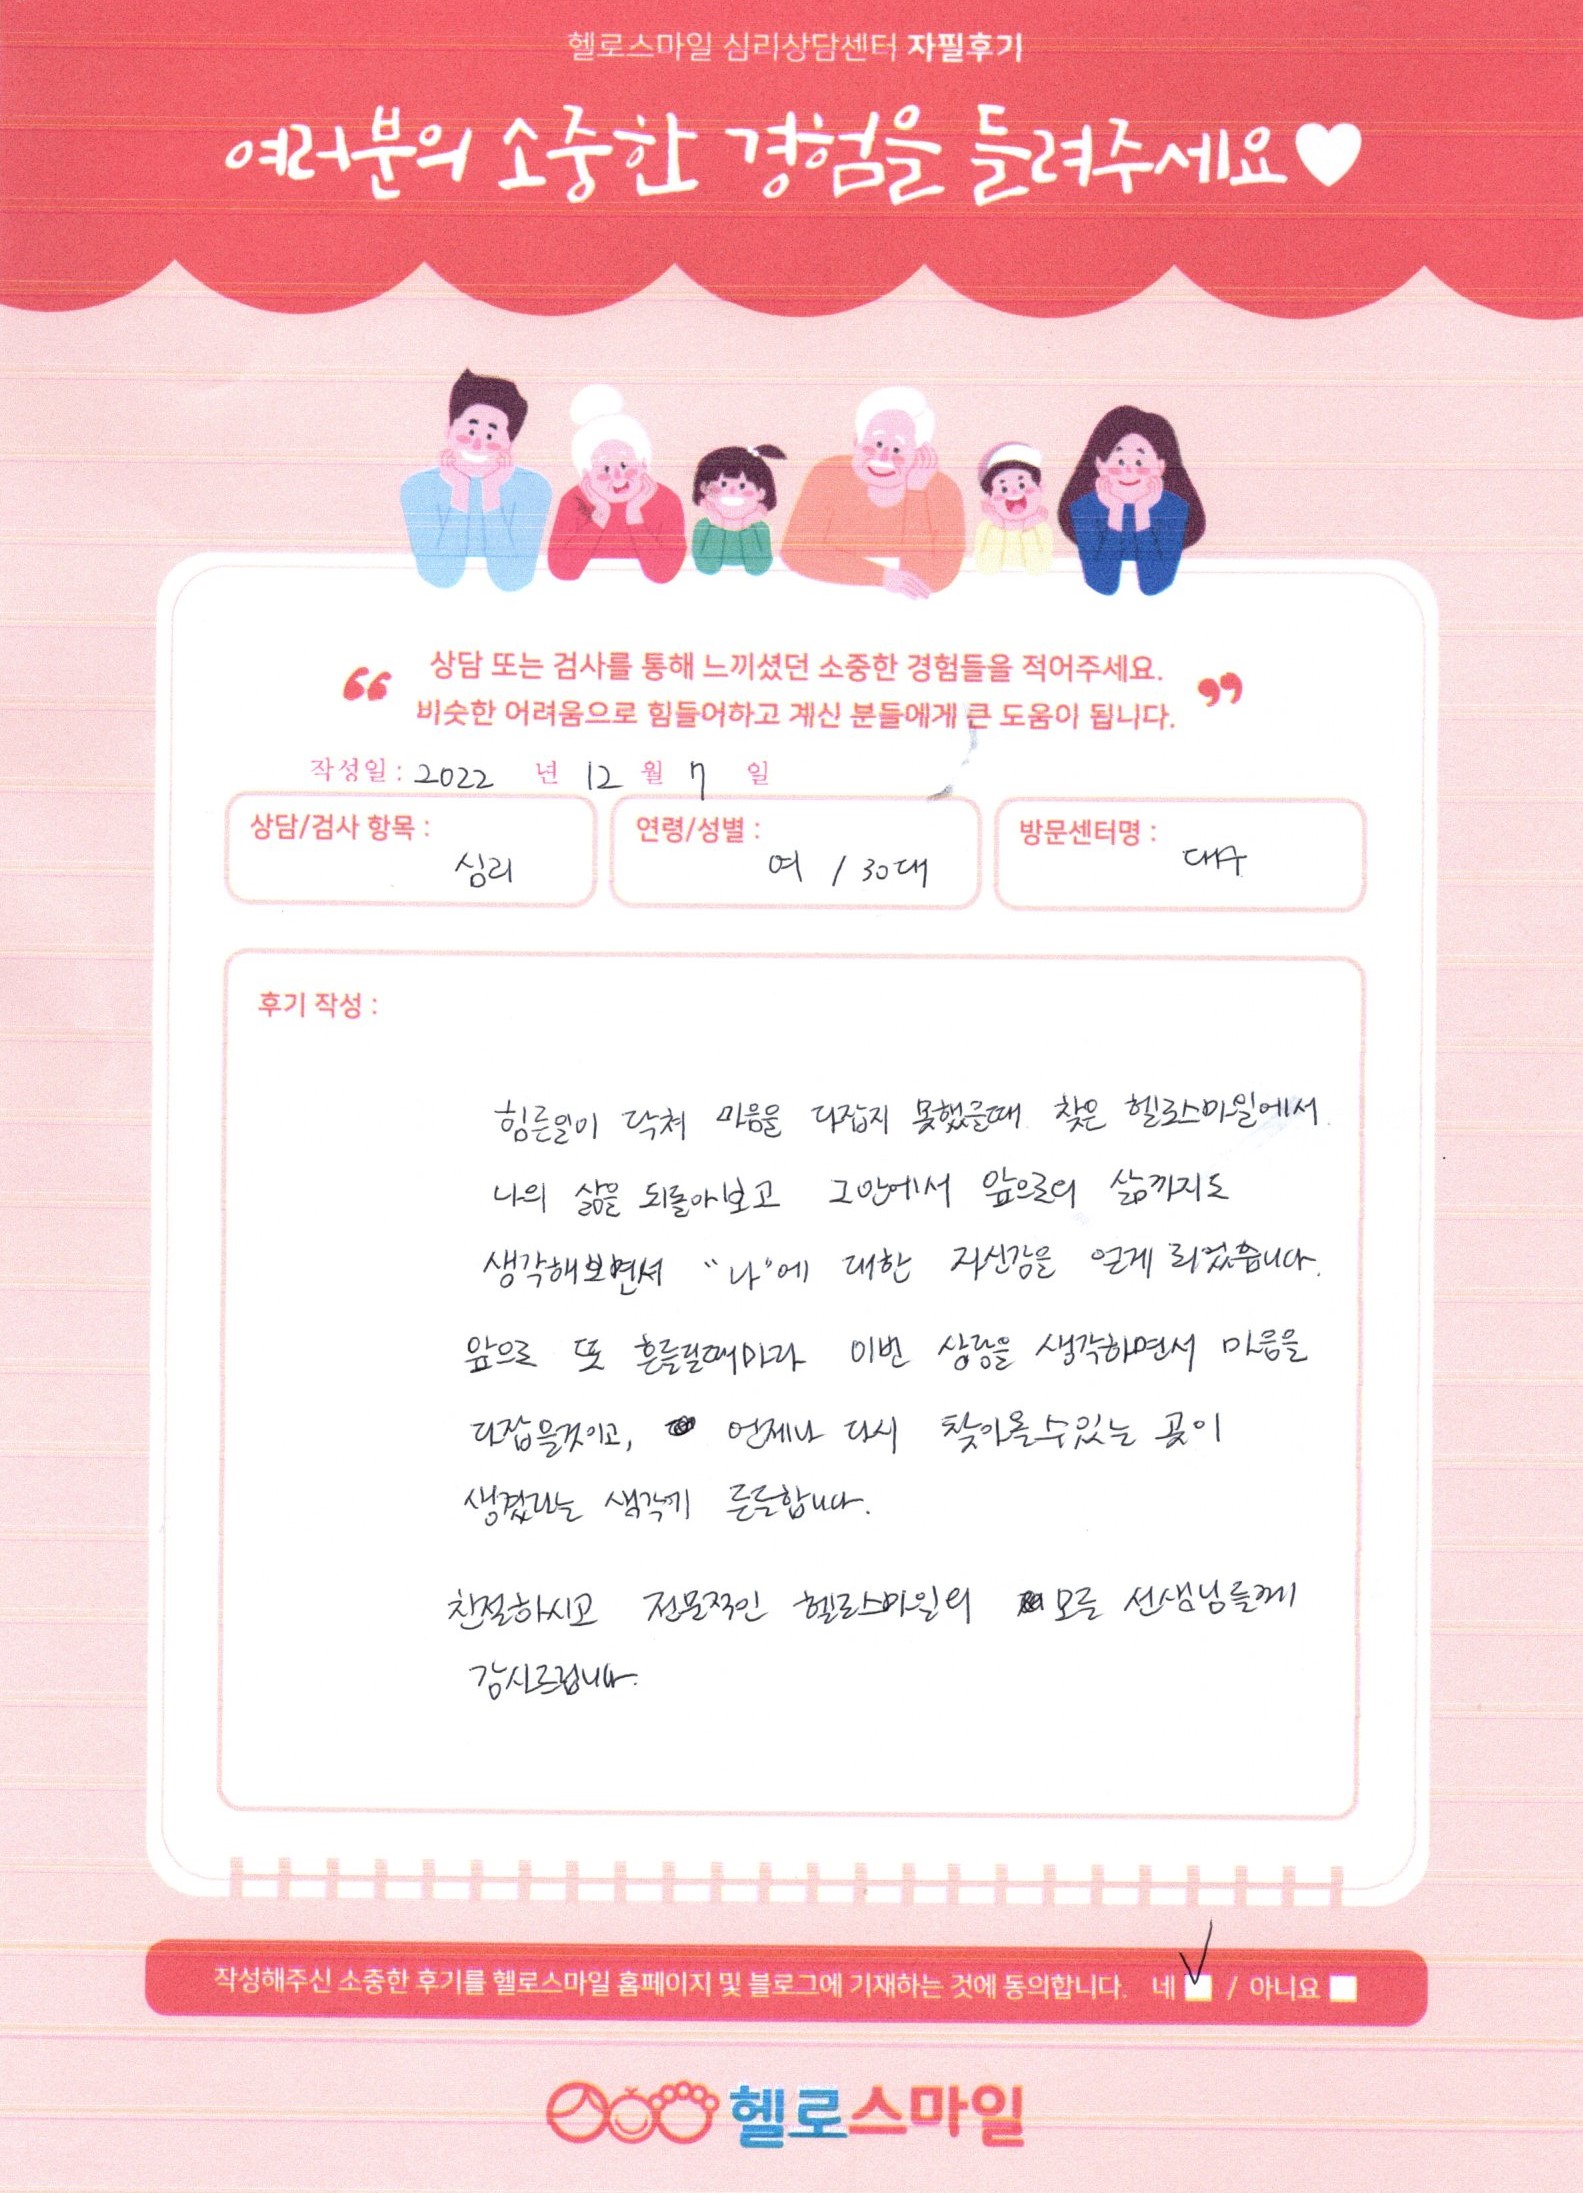 헬로스마일 심리상담센터 자필후기
여러분의 소중한 경험을 들려주세요♥
“ 상담 또는 검사를 통해 느끼셨던 소중한 경험들을 적어주세요.
비슷한 어려움으로 힘들어하고 계신 분들에게 큰 도움이 됩니다. ”
작성일 : 2022 년 12 월 7 일
상담/검사 항목 : 심리
연령/성별 : 여 / 30대
방문센터명 : 대구
후기 작성 :
힘든일이 닥쳐 마음을 다잡지 못했을때 찾은 헬로스마일에서
나의 삶을 되돌아보고 그안에서 앞으로의 삶까지도
생각해보면서 "나"에 대한 자신감을 얻게 되었습니다.
앞으로 또 흔들릴때마다 이번 상담을 생각하면서 마음을
다잡을것이고, 언제나 다시 찾아올수있는 곳이
생겼다는 생각에 든든합니다.
친절하시고 전문적인 헬로스마일의 모든 선생님들께
감사드립니다.
작성해주신 소중한 후기를 헬로스마일 홈페이지 및 블로그에 기재하는 것에 동의합니다. 네 ✓ / 아니요
헬로스마일